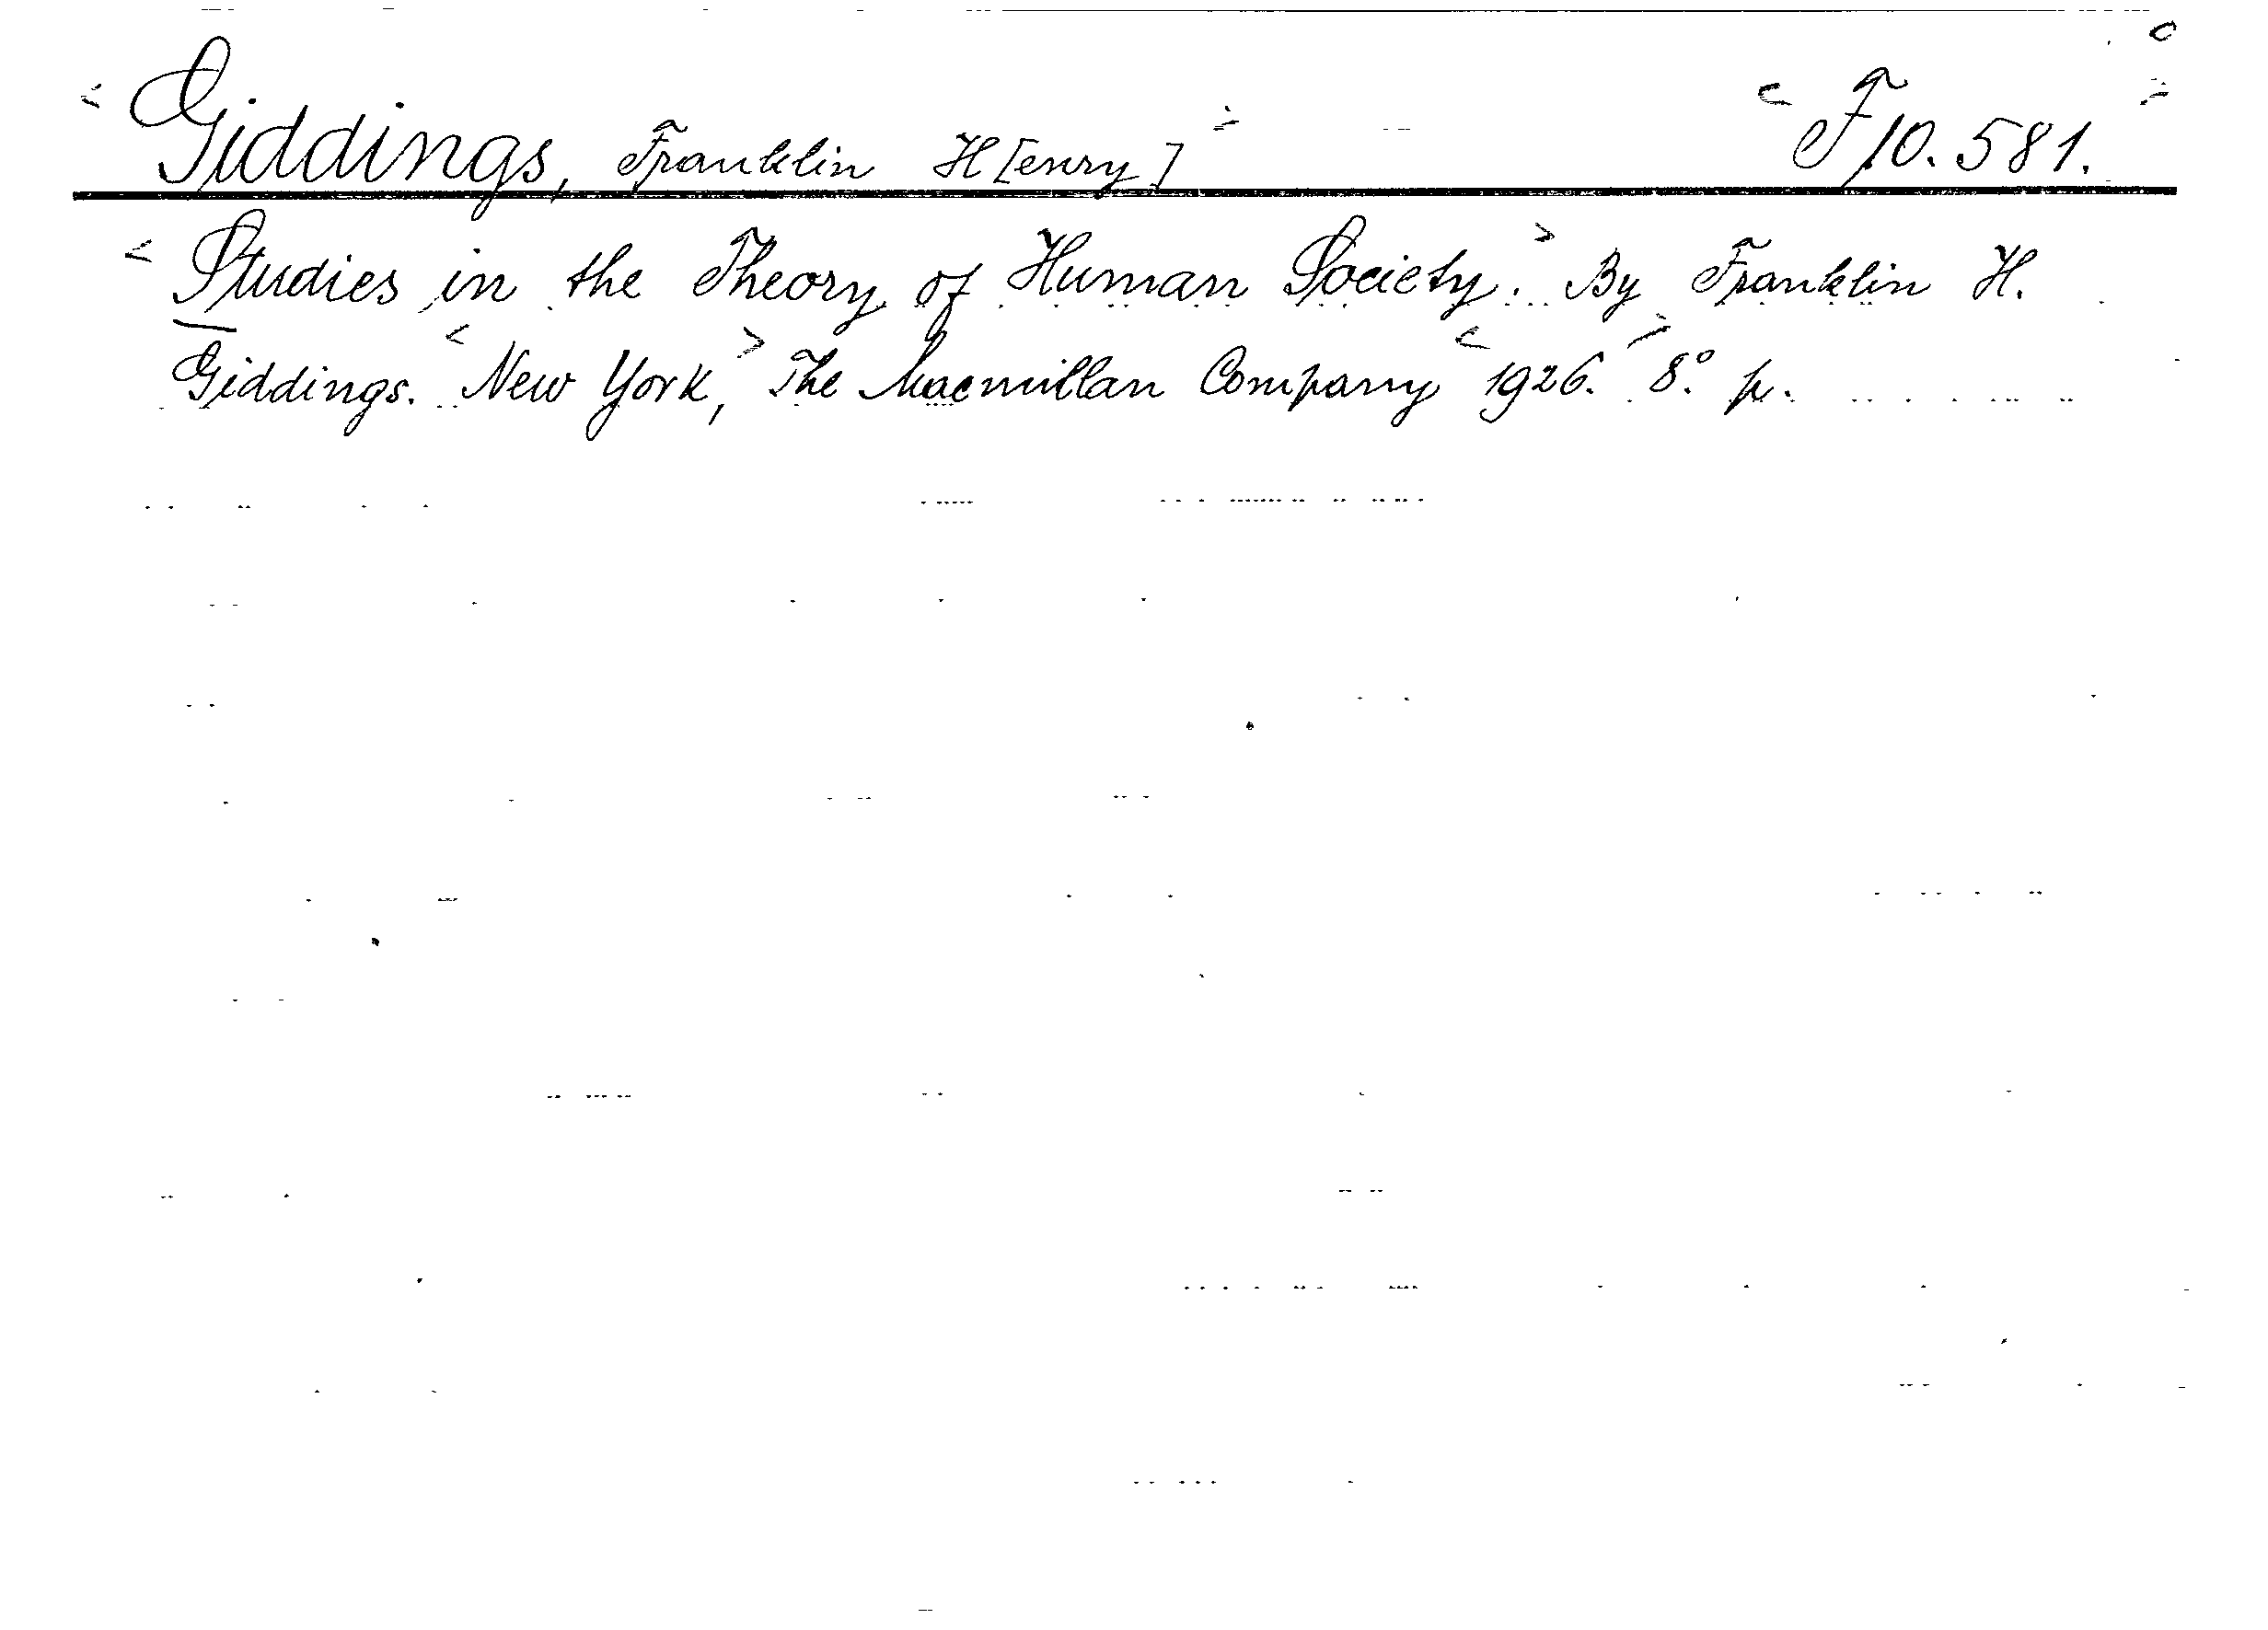 <Giddings, Franklin H[enry]> <F 10.581.>
<Studies in the Theory of Human Society.> By Franklin H.
Giddings. <New York,> The Macmillan Company <1926.> 8°. p.